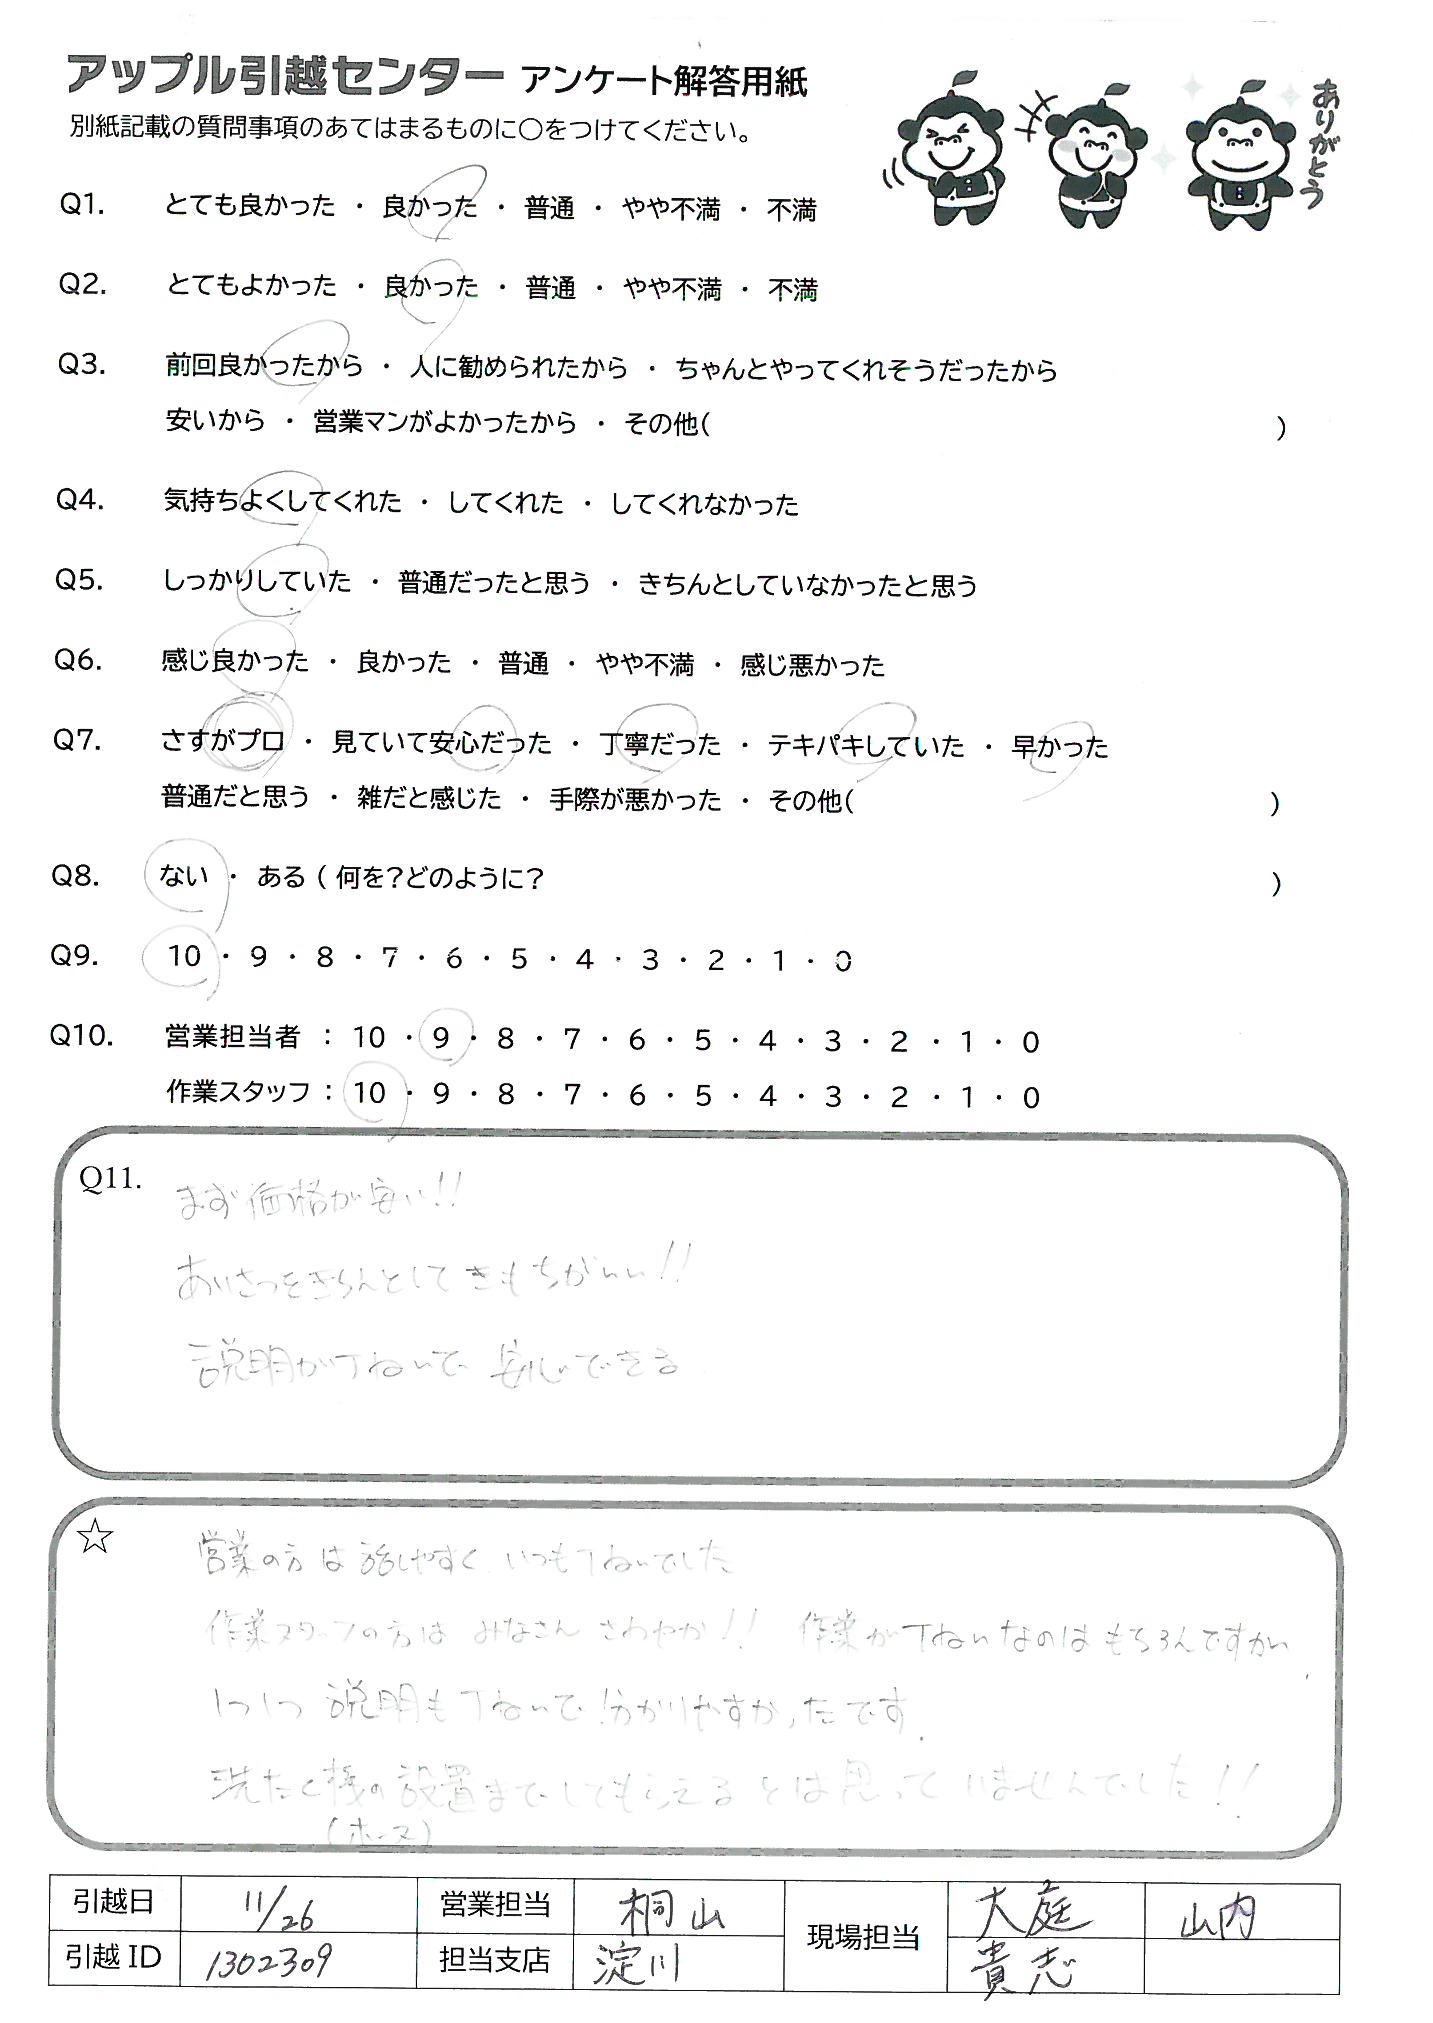 アップル引越センター アンケート解答用紙
別紙記載の質問事項のあてはまるものに○をつけてください。
ありがとう
Q1. とても良かった ・ 良かった ・ 普通 ・ やや不満 ・ 不満
Q2. とてもよかった ・ 良かった ・ 普通 ・ やや不満 ・ 不満
Q3. 前回良かったから ・ 人に勧められたから ・ ちゃんとやってくれそうだったから
安いから ・ 営業マンがよかったから ・ その他( )
Q4. 気持ちよくしてくれた ・ してくれた ・ してくれなかった
Q5. しっかりしていた ・ 普通だったと思う ・ きちんとしていなかったと思う
Q6. 感じ良かった ・ 良かった ・ 普通 ・ やや不満 ・ 感じ悪かった
Q7. さすがプロ ・ 見ていて安心だった ・ 丁寧だった ・ テキパキしていた ・ 早かった
普通だと思う ・ 雑だと感じた ・ 手際が悪かった ・ その他( )
Q8. ない ・ ある ( 何を?どのように? )
Q9. 10 ・ 9 ・ 8 ・ 7 ・ 6 ・ 5 ・ 4 ・ 3 ・ 2 ・ 1 ・ 0
Q10. 営業担当者 : 10 ・ 9 ・ 8 ・ 7 ・ 6 ・ 5 ・ 4 ・ 3 ・ 2 ・ 1 ・ 0
作業スタッフ : 10 ・ 9 ・ 8 ・ 7 ・ 6 ・ 5 ・ 4 ・ 3 ・ 2 ・ 1 ・ 0
Q11. まず価格が安い!!
あいさつをきちんとしてきもちがいい!!
説明が丁ねいで 安心できる
☆ 営業の方は話しやすく いつも丁ねいでした
作業スタッフの方は みなさん さわやか!! 作業が丁ねいなのはもちろんですが、
1つ1つ 説明も丁ねいで 分かりやすかったです.
洗たく機の設置までしてもらえるとは思っていませんでした!!
(ホース)
引越日 11/26 営業担当 桐山 現場担当 大庭 山内
引越 ID 1302309 担当支店 淀川 貴志